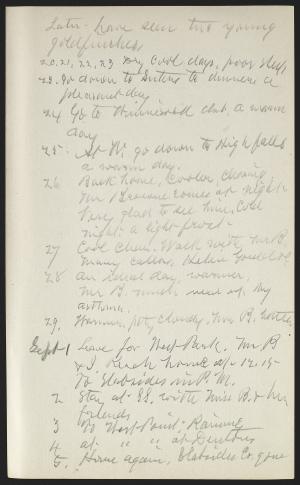 Later - have seen two young
goldfinches
20, 21, 22, 23 Dry cool days, poor sleep
23. Go down to to dinner a
pleasant day
24 Go to club, a warm
day
25 - At W. go down to High falls
a warm day.
26 Back home, Cooler, clearing,
Mr B comes at night -
Very glad to see him. Cold
night: a light frost -
27 Cool clear. Walk with Mr B.
Many callers, Helen
28 An ideal day, warmer,
Mr B. much my
29, Warmer, pty cloudy, Mr B.
Sept 1 leave for West Park. Mr B
& I. Reach home at 12.15 -
To Slabsides in P. M.
2 Stay at SS. with Miss B. & her
friends
3 To West Point - Raining
4 at " " at
5, Home again, Slabsides Co. gone